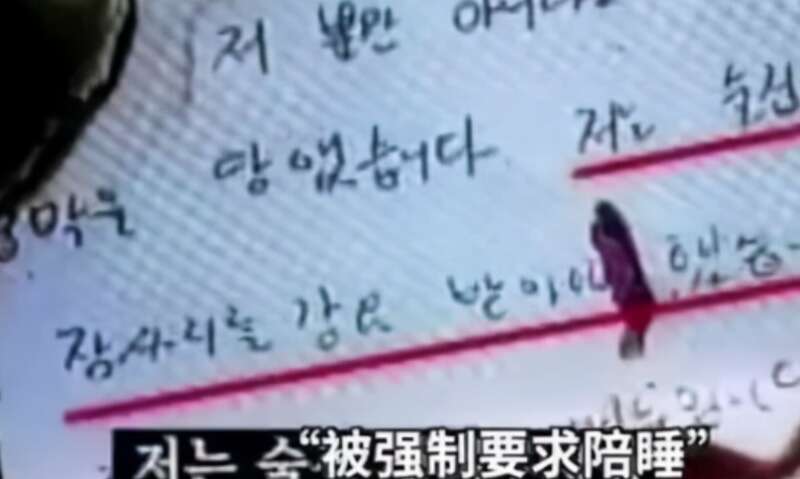 저 뿐만 아니라
땅 없습니다. 저는 술접
막을
잠자리를 강요 받아야 했습
저는 술
“被强制要求陪睡”